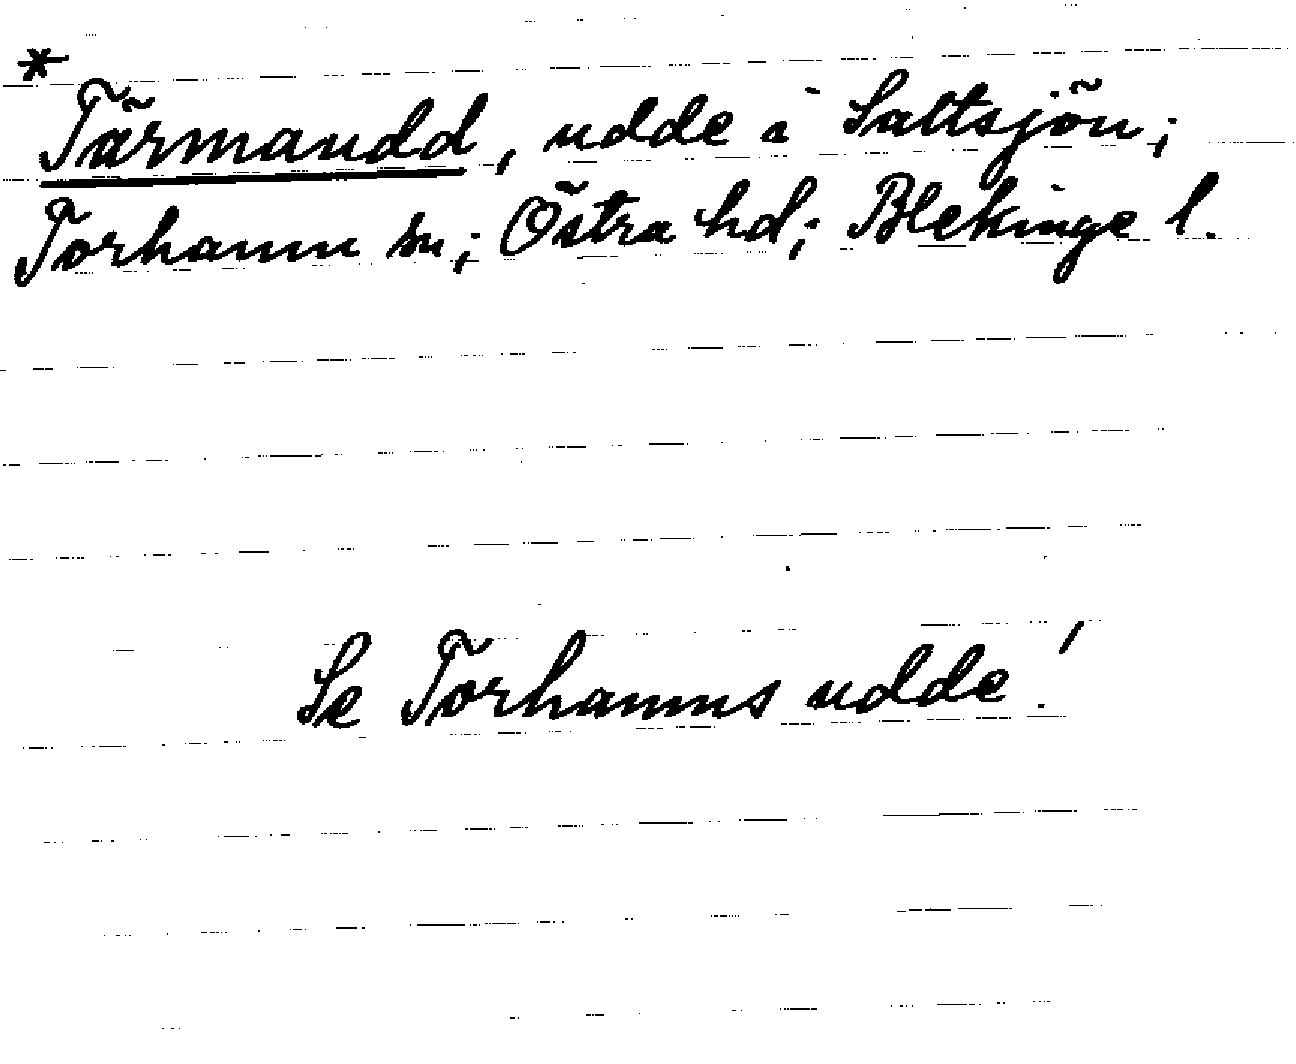 *
Tärmaudd, udde i Saltsjön;
Torhamn sn; Östra hd; Blekinge l.
Se Torhamns udde!